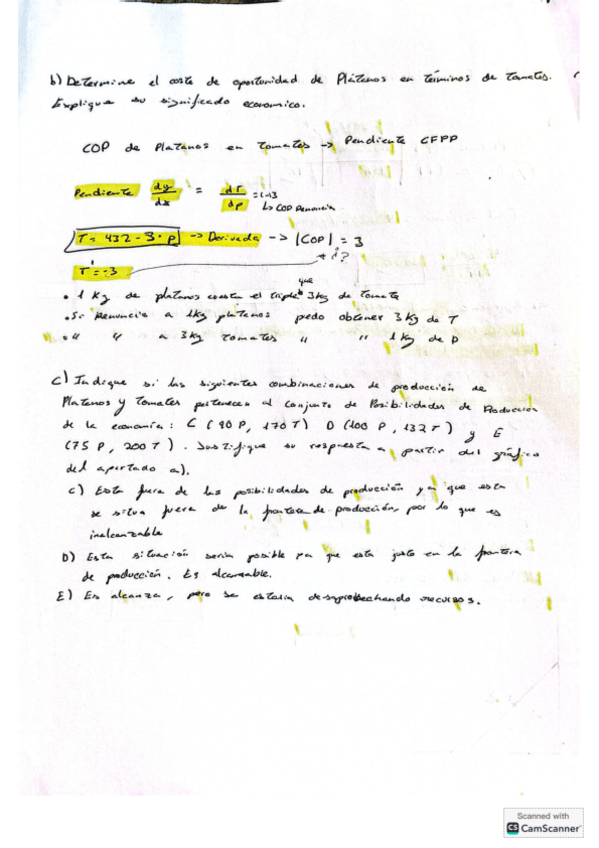 b) Determine el coste de oportunidad de Plátanos en términos de tomates.
Explique su significado economico.
COP de Platanos en Tomates -> Pendiente CFPP
Pendiente dy/dx = dT/dp = (-)3
↳ COP Renuncia
T = 432 - 3·P -> Derivada -> |COP| = 3
T' = -3
¿?
que
• 1 Kg de platanos cuesta el triple 3kg de tomate
• Si Renuncio a 1kg platanos puedo obtener 3 kg de T
• " " a 3kg tomates " " 1 kg de P
C) Indique si las siguientes combinaciones de producción de
Platanos y Tomates pertenecen al conjunto de Posibilidades de Producción
de la economía: C (90 P, 170 T) D (100 P, 132 T) y E
(75 P, 200 T). Justifique su respuesta a partir del gráfico
del apartado a).
C) Esta fuera de las posibilidades de producción ya que esta
se situa fuera de la frontera de producción, por lo que es
inalcanzable
D) Esta situación seria posible ya que esta justo en la frontera
de producción. Es alcanzable.
E) Es alcanza, pero se estaria desaprobechando recursos.
Scanned with
CS CamScanner